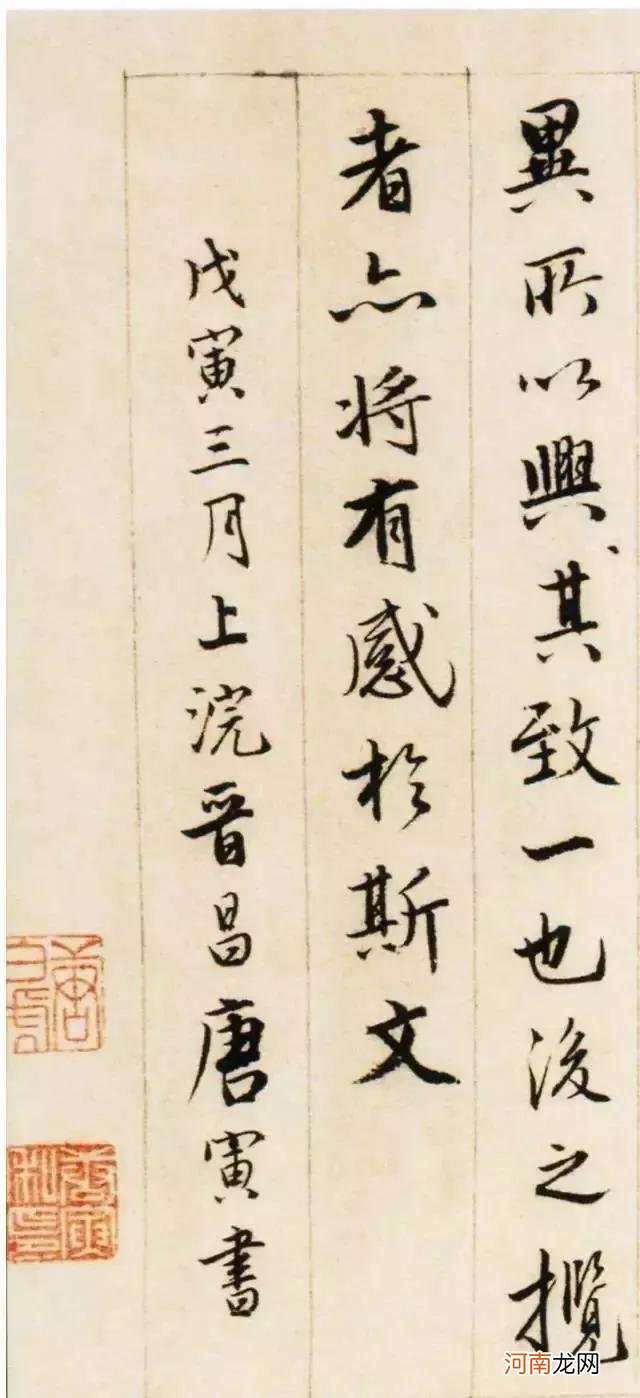 異所以興其致一也後之攬
者亦将有感於斯文
戊寅三月上浣晋昌唐寅書
唐寅私印
河南龙网